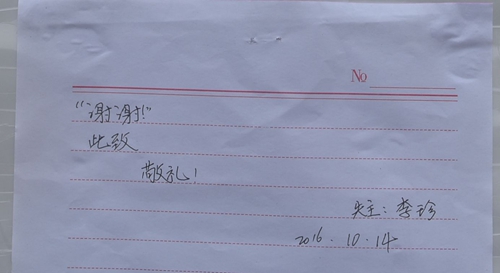 No
“谢谢!”
此致
敬礼!
失主:李珍
2016.10.14